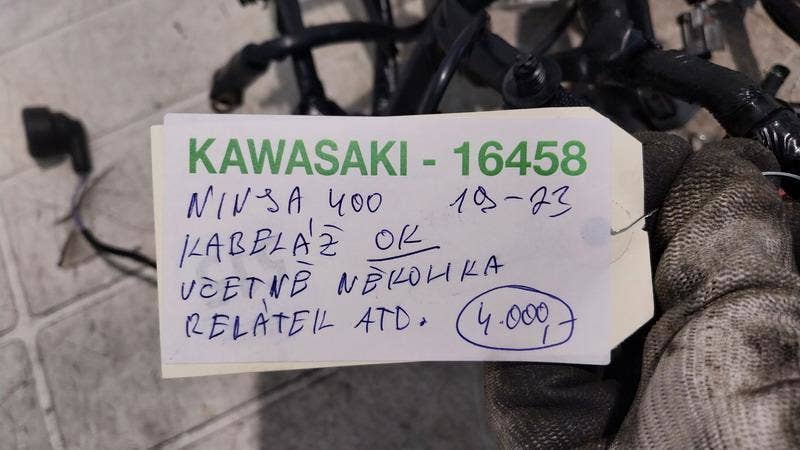 KAWASAKI - 16458
NINJA 400 19-23
KABELÁŽ OK
VČETNĚ NĚKOLIKA
RELÁTEK ATD. 4.000,-